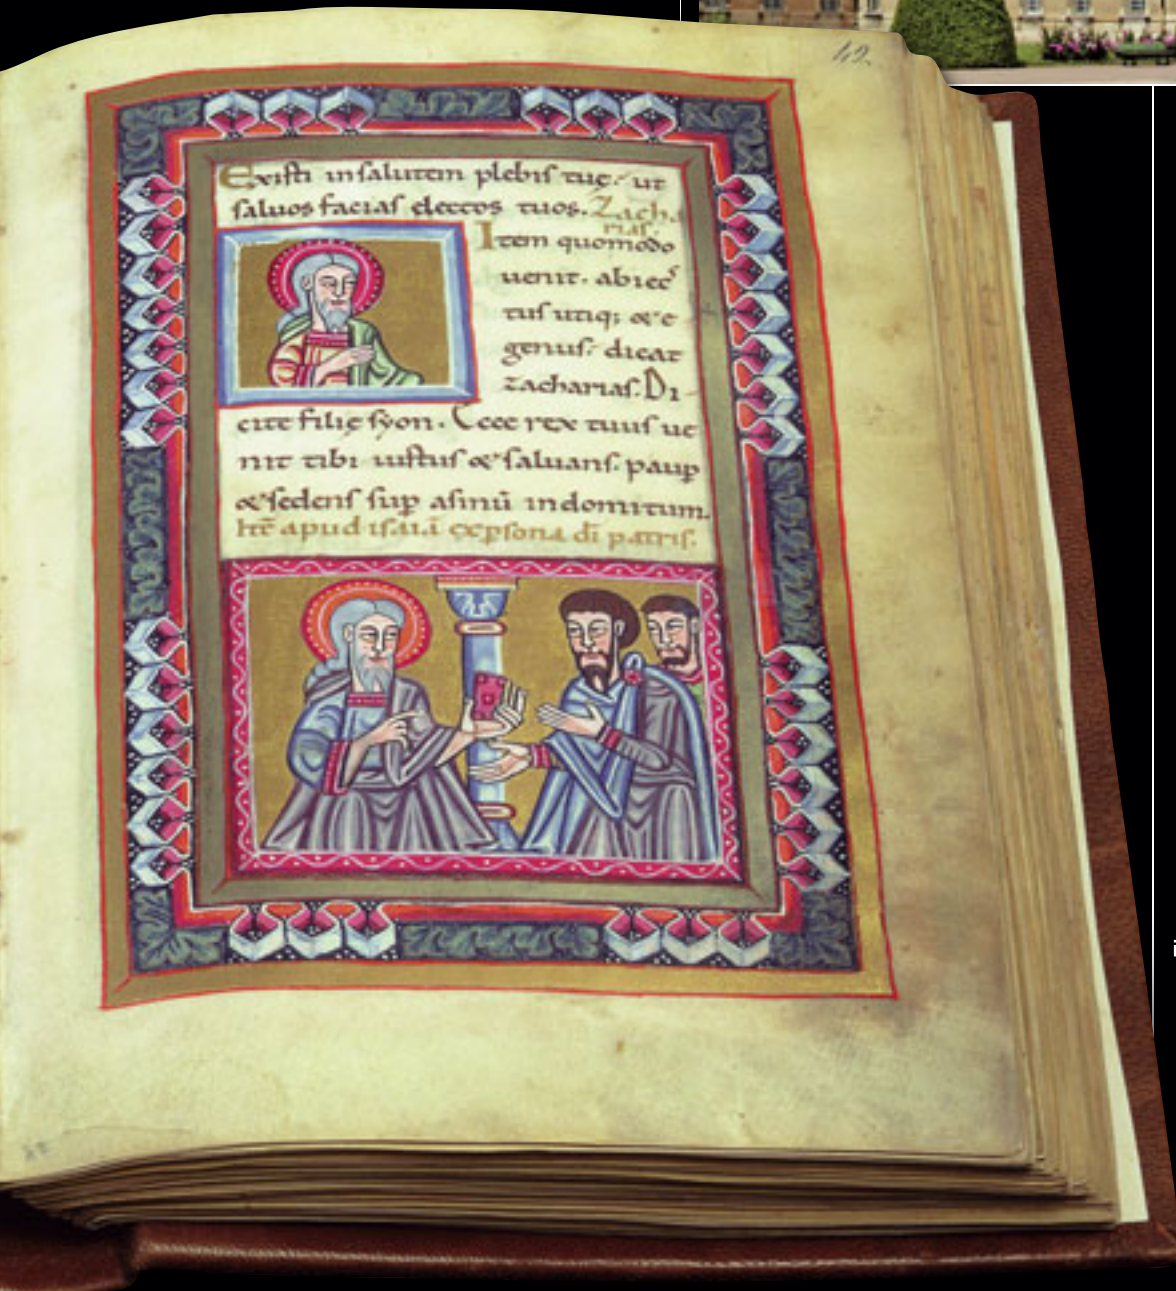 42
Existi insalutem plebis tuę. ut
saluos facias electos tuos. Zacha
rias.
Item quomodo
uenit. abiec
tus utiq; & e
genus. dicat
zacharias. Di
cite filię syon. Ecce rex tuus ue
nit tibi iustus & saluans. paup̄
& sedens sup̄ asinū indomitum.
Itē apud isaiā ex p̱sona dī patris.